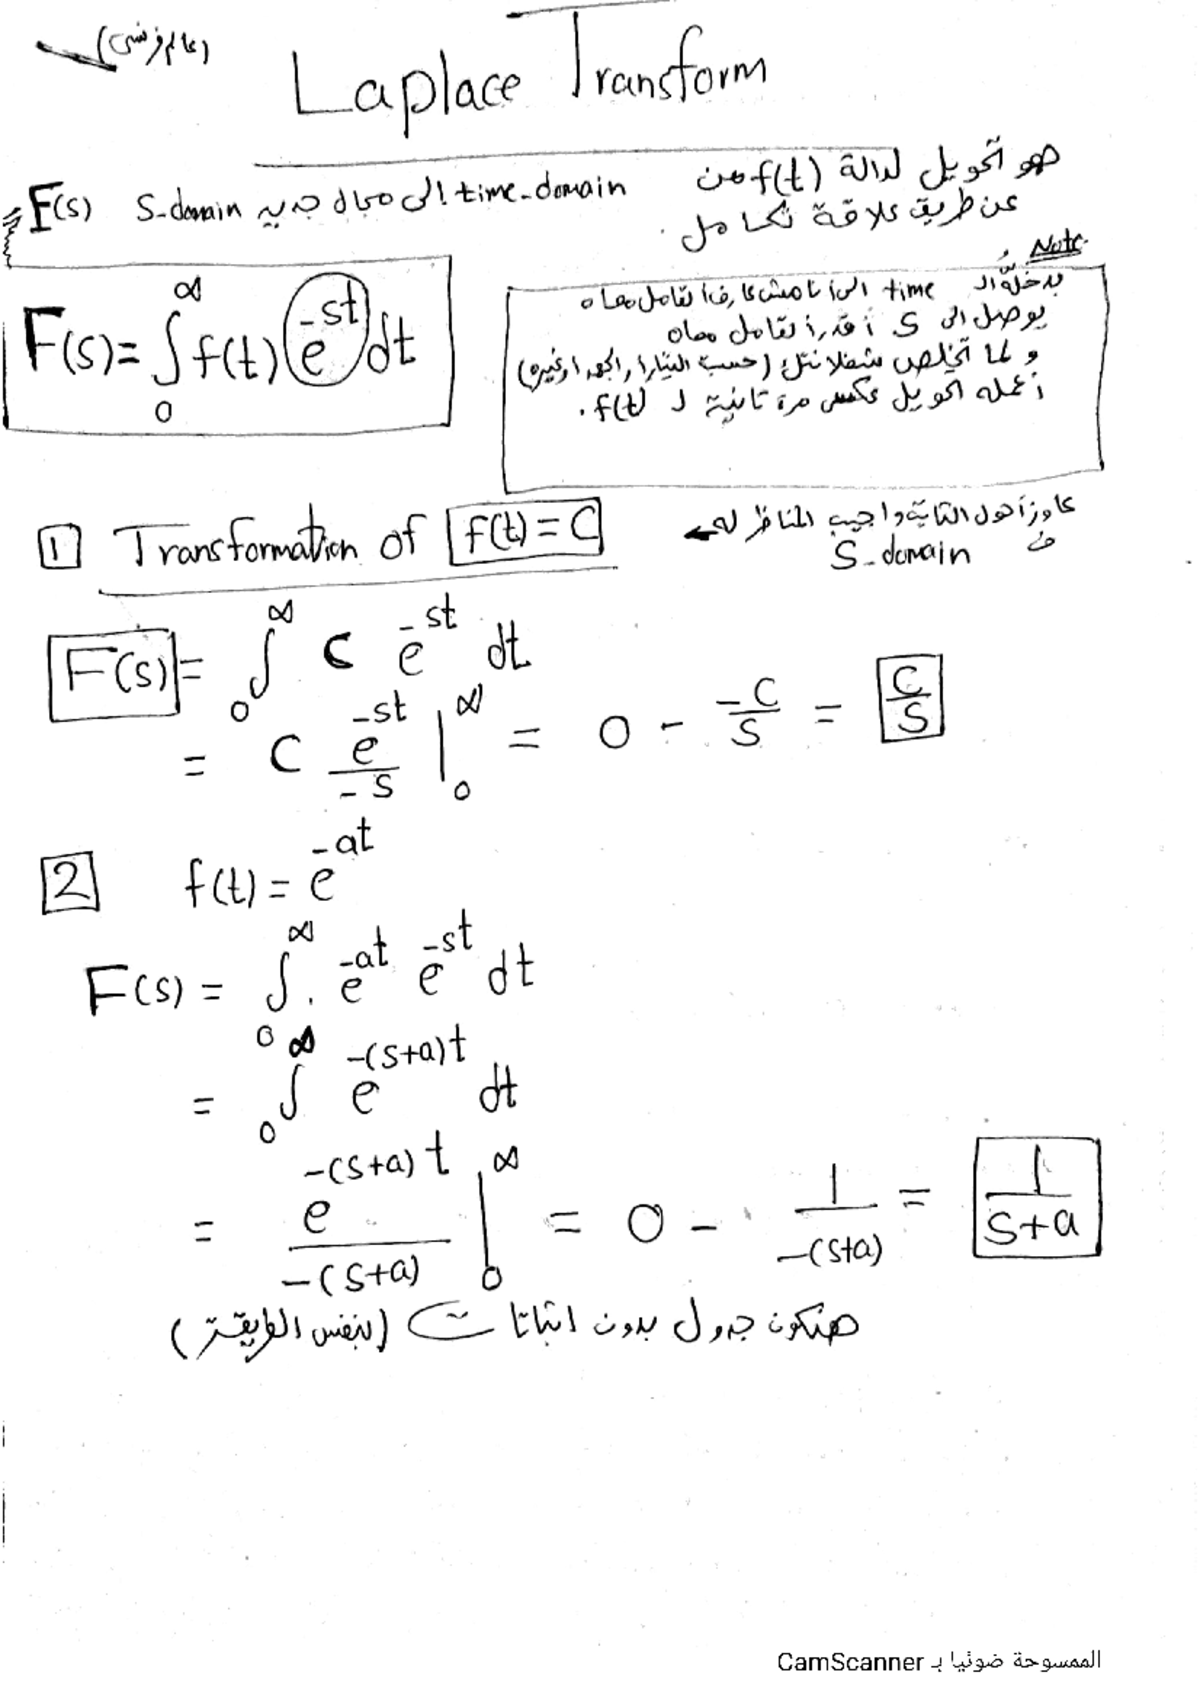 (عالم فرنسى)
Laplace Transform
هو تحويل لدالة f(t) من time-domain الى مجال جديد S-domain F(s)
عن طريق علاقة تكامل.
F(s) = ∫₀^∞ f(t) e^{-st} dt
Note
بدخله الـ time الى أنا مش عارف أتعامل معاه
يوصل الى S أقدر أتعامل معاه
و لما تخلص شغلانتك (حسبت التيار، الجهد أو غيره)
أعمله تحويل عكس مرة تانية لـ f(t).
1 Transformation of f(t) = C
عاوز أحول الثابت و اجيب المناظر له
فى S-domain
F(s) = ∫₀^∞ C e^{-st} dt
= C e^{-st}/-s |₀^∞ = 0 - -C/S = C/S
2 f(t) = e^{-at}
F(s) = ∫₀^∞ . e^{-at} e^{-st} dt
= ∫₀^∞ e^{-(s+a)t} dt
= e^{-(s+a)t}/-(s+a) |₀^∞ = 0 - 1/-(s+a) = 1/S+a
هنكون جدول بدون اثباتات (بنفس الطريقة)
الممسوحة ضوئيا بـ CamScanner